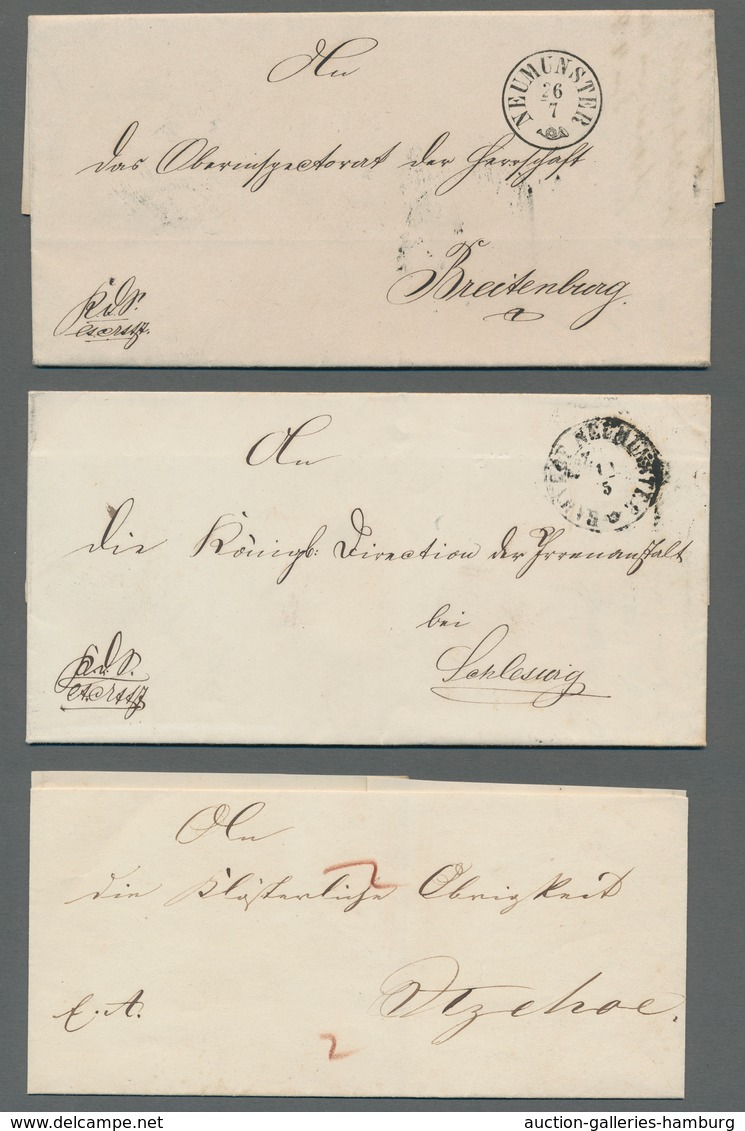 An
NEUMÜNSTER
26
7
das Oberinspectorat der Herrschaft
Breitenburg.
K.d.S.
An
BAHNHOF NEUMÜNSTER
5
die Königl: Direction der Irrenanstalt
bei
Schleswig
K.d.S.
An
die Klösterliche Obrigkeit
Itzehoe.
E.A.
2
2
auction-galleries-hamburg